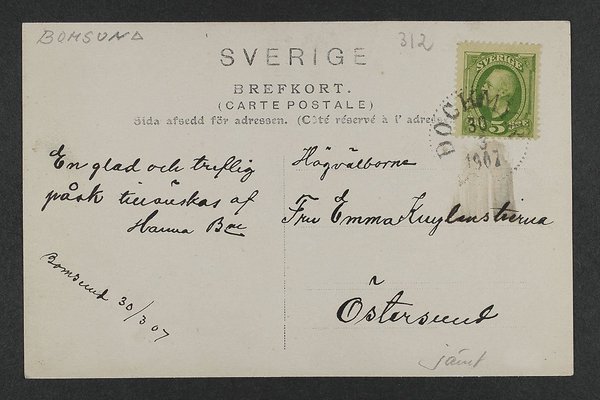 BOMSUND
312
SVERIGE
BREFKORT.
(CARTE POSTALE)
Sida afsedd för adressen. (Côté réservé à l'adresse
SVERIGE
5
DOCKM
30
3
1907
En glad och treflig
påsk tillönskas af
Hanna Bm
Bomsund 30/3 07
Högvälborne
Fru Emma Kuylenstierna
Östersund
jämt